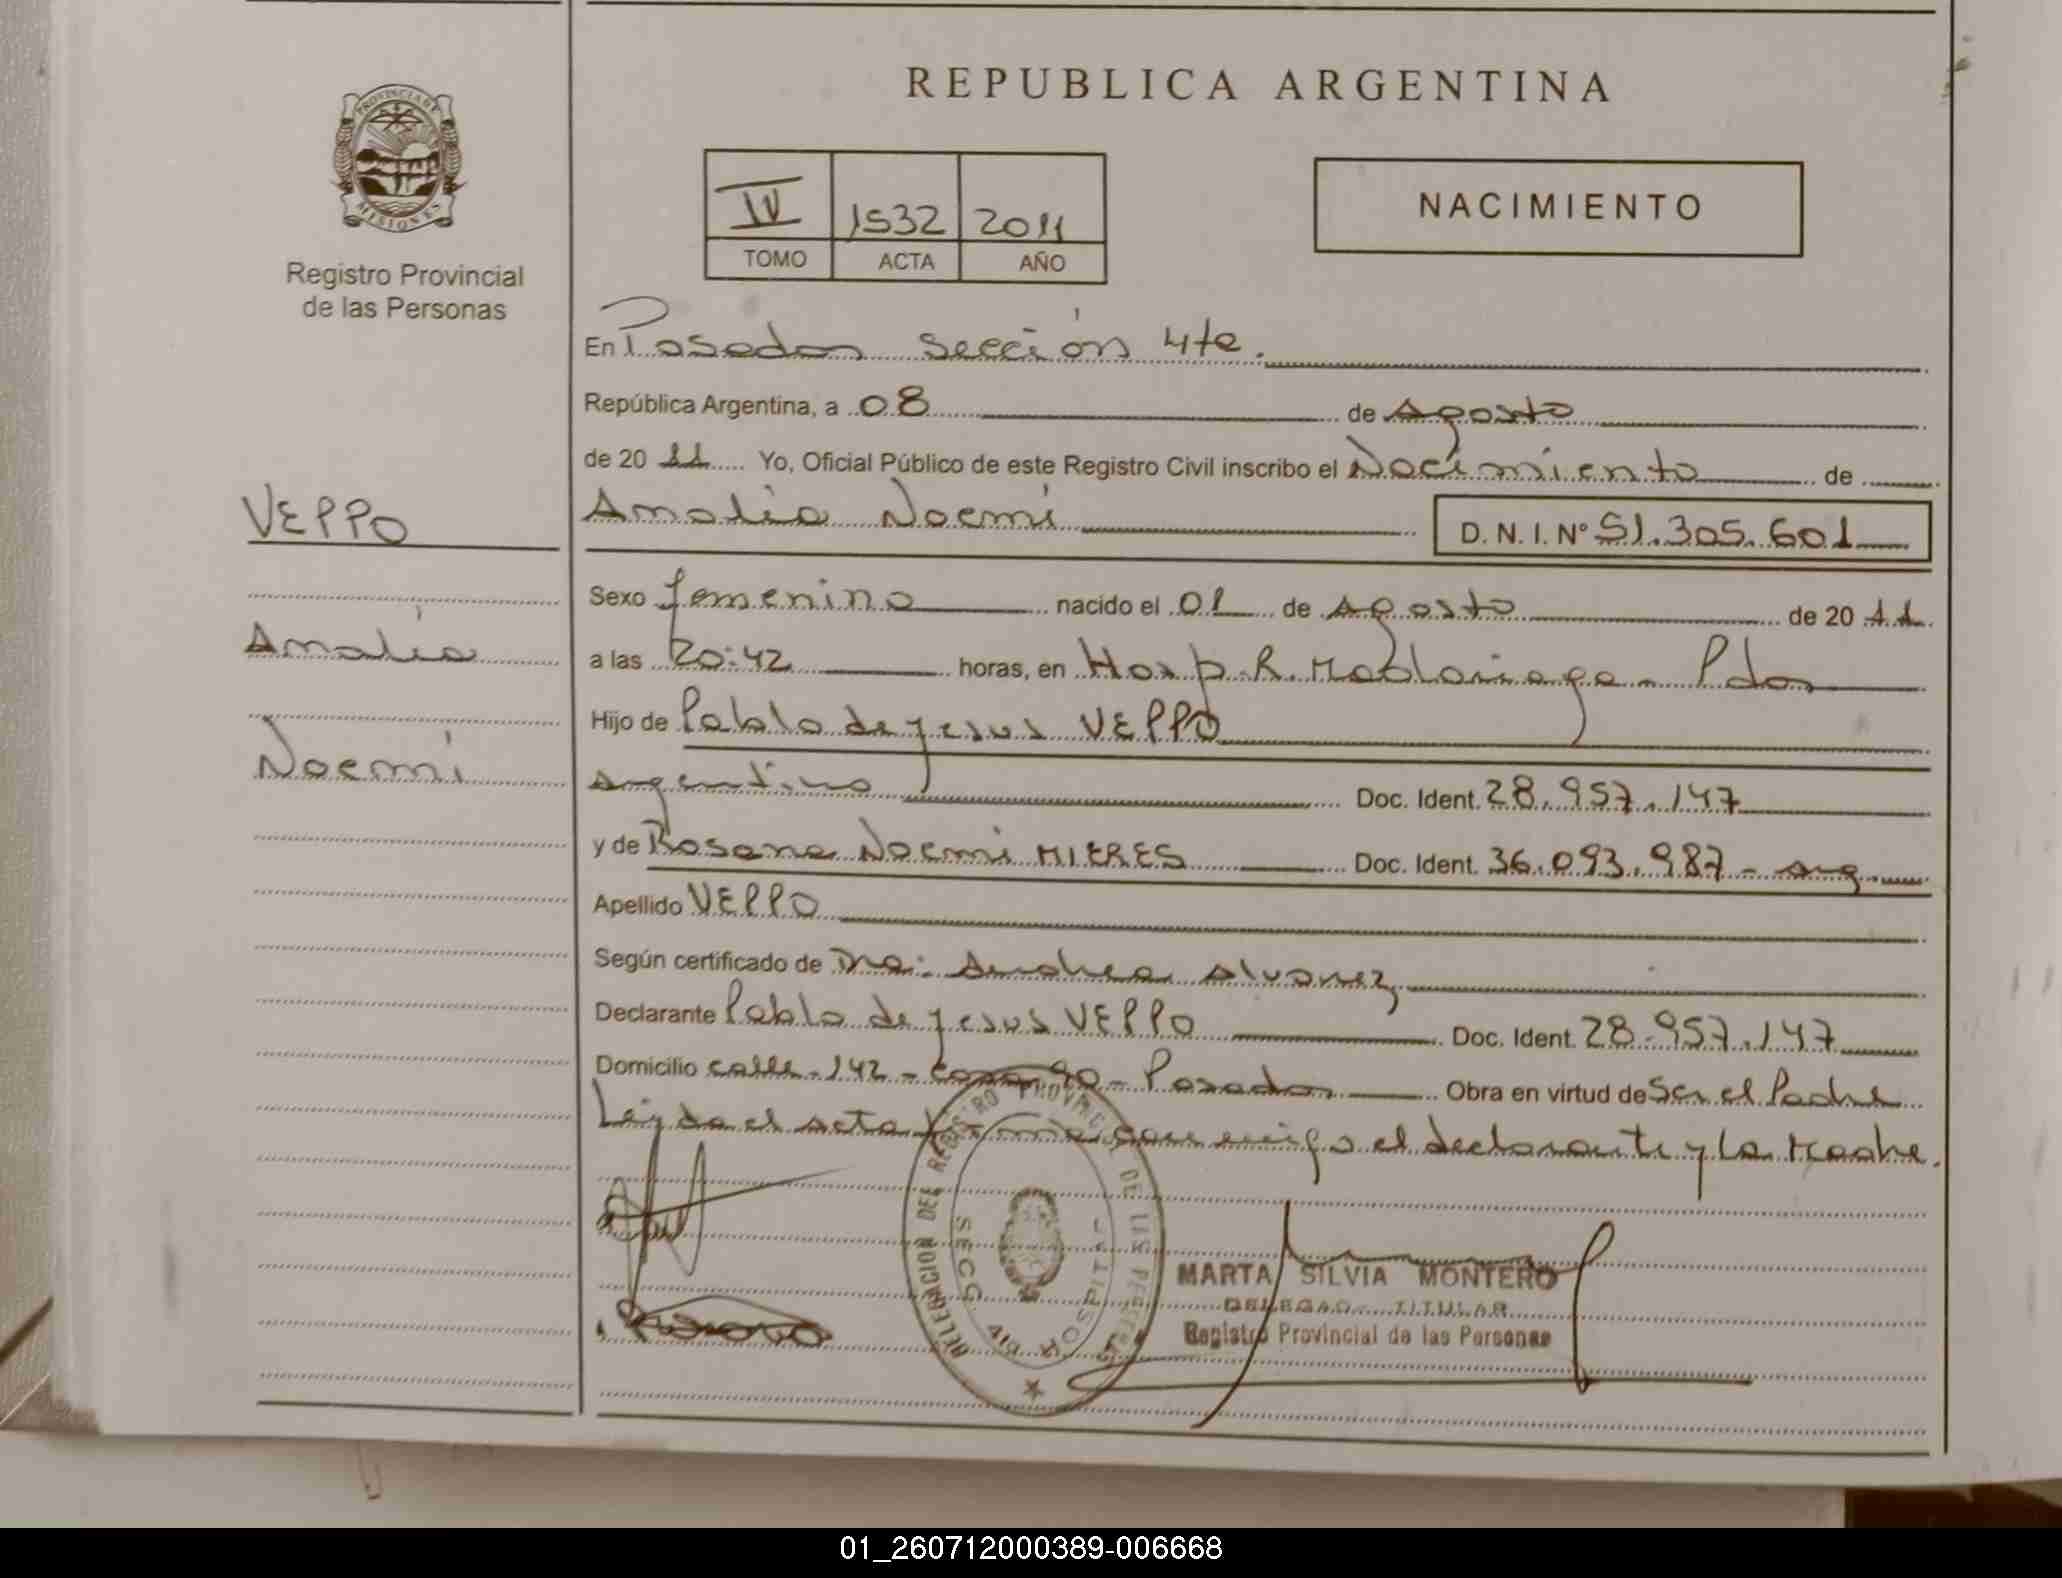 REPUBLICA ARGENTINA
PROVINCIA DE MISIONES
Registro Provincial
de las Personas
IV 1532 2011
TOMO ACTA AÑO
NACIMIENTO
En Posadas sección 4ta.
República Argentina, a 08 de Agosto
de 2011 Yo, Oficial Público de este Registro Civil inscribo el Nacimiento de
VEPPO
Amalia Noemi D. N. I. Nº 51.305.601
Sexo femenino nacido el 01 de Agosto de 2011
Amalia
a las 20:42 horas, en Hosp. R. Madariaga - Pdas
Hijo de Pablo de Jesus VEPPO
Noemi
Argentino Doc. Ident. 28.957.147
y de Rosana Noemi MIERES Doc. Ident. 36.093.987 - arg.
Apellido VEPPO
Según certificado de Dra: Andrea Alvarez
Declarante Pablo de Jesus VEPPO Doc. Ident. 28.957.147
Domicilio calle - 142 - casa 90 - Posadas Obra en virtud de Ser el Padre
Leida el acta firma conmigo el declarante y la Madre.
DELEGACION DEL REGISTRO PROVINCIAL DE LAS PERSONAS
SECC. 4ta
MARTA SILVIA MONTERO
DELEGADA TITULAR
Registro Provincial de las Personas
01_260712000389-006668